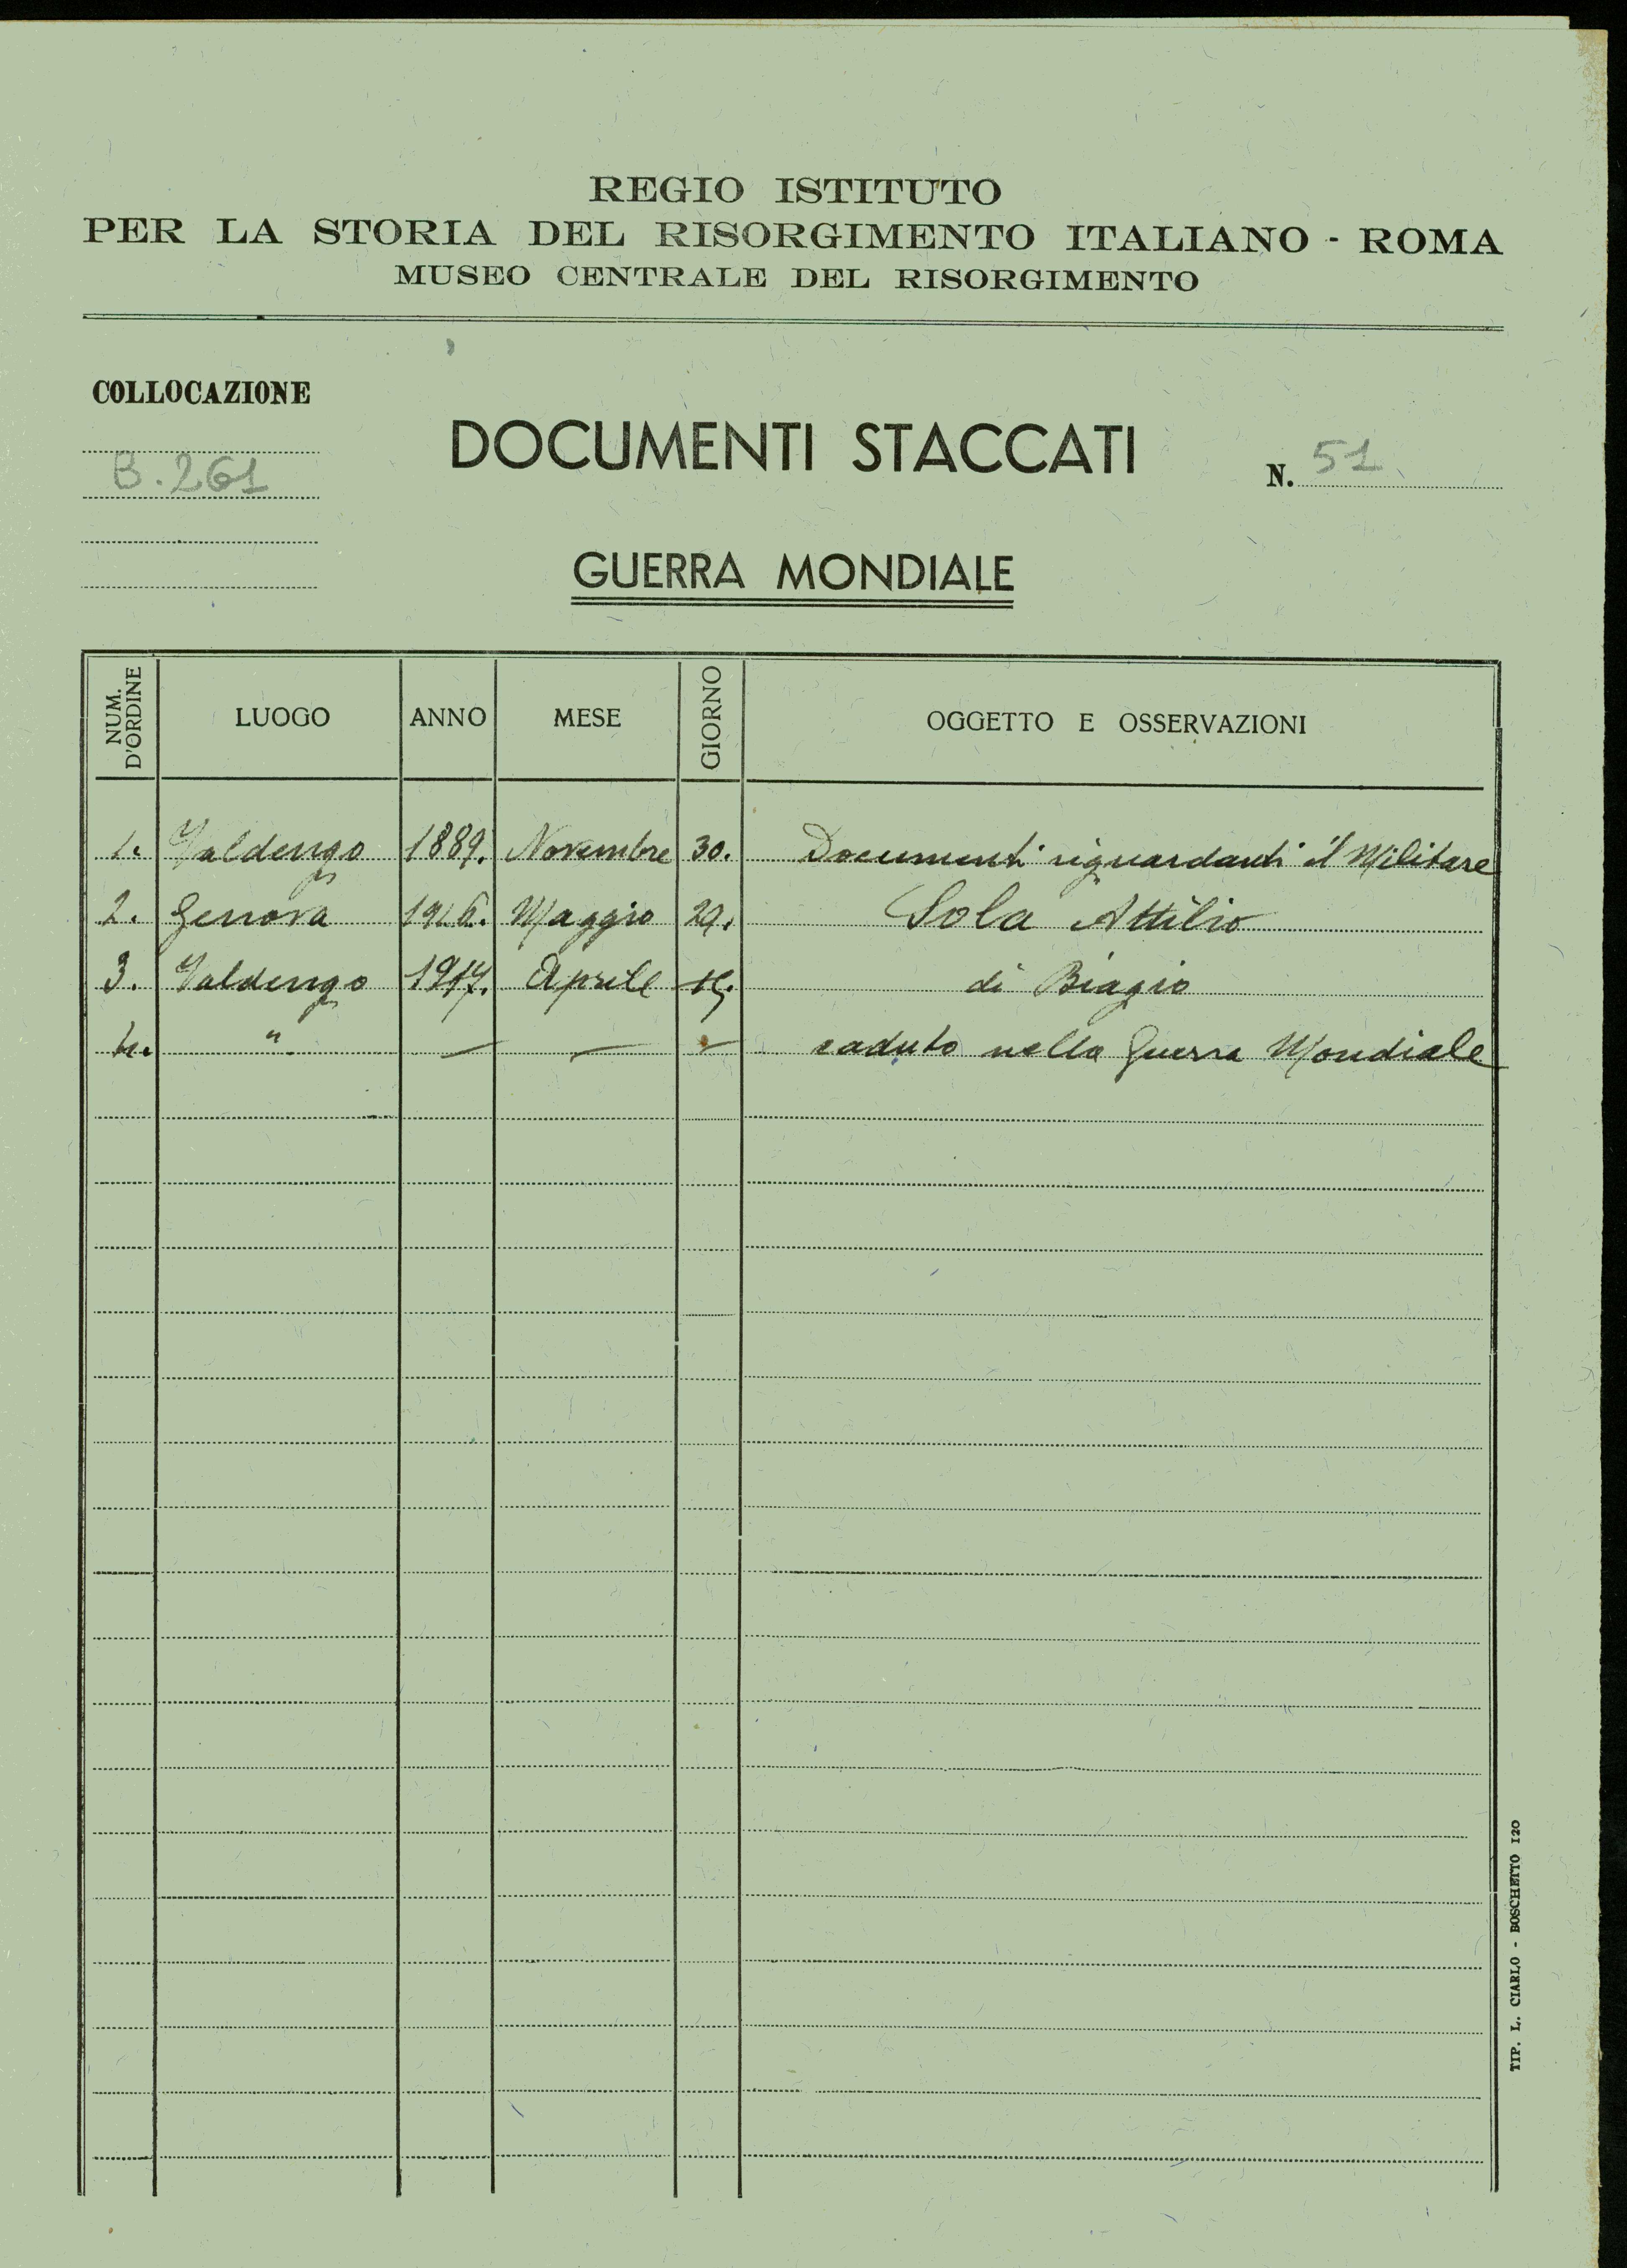 REGIO ISTITUTO
PER LA STORIA DEL RISORGIMENTO ITALIANO - ROMA
MUSEO CENTRALE DEL RISORGIMENTO
COLLOCAZIONE
B. 261
DOCUMENTI STACCATI
N. 51
GUERRA MONDIALE
NUM. D'ORDINE LUOGO ANNO MESE GIORNO OGGETTO E OSSERVAZIONI
1. Valdengo 1889. Novembre 30. Documenti riguardanti il Militare
2. Genova 1916. Maggio 29. Sola Attilio
3. Valdengo 1917. Aprile di Biagio
4. " — — — caduto nella Guerra Mondiale
TIP. L. CIARLO - BOSCHETTO 120